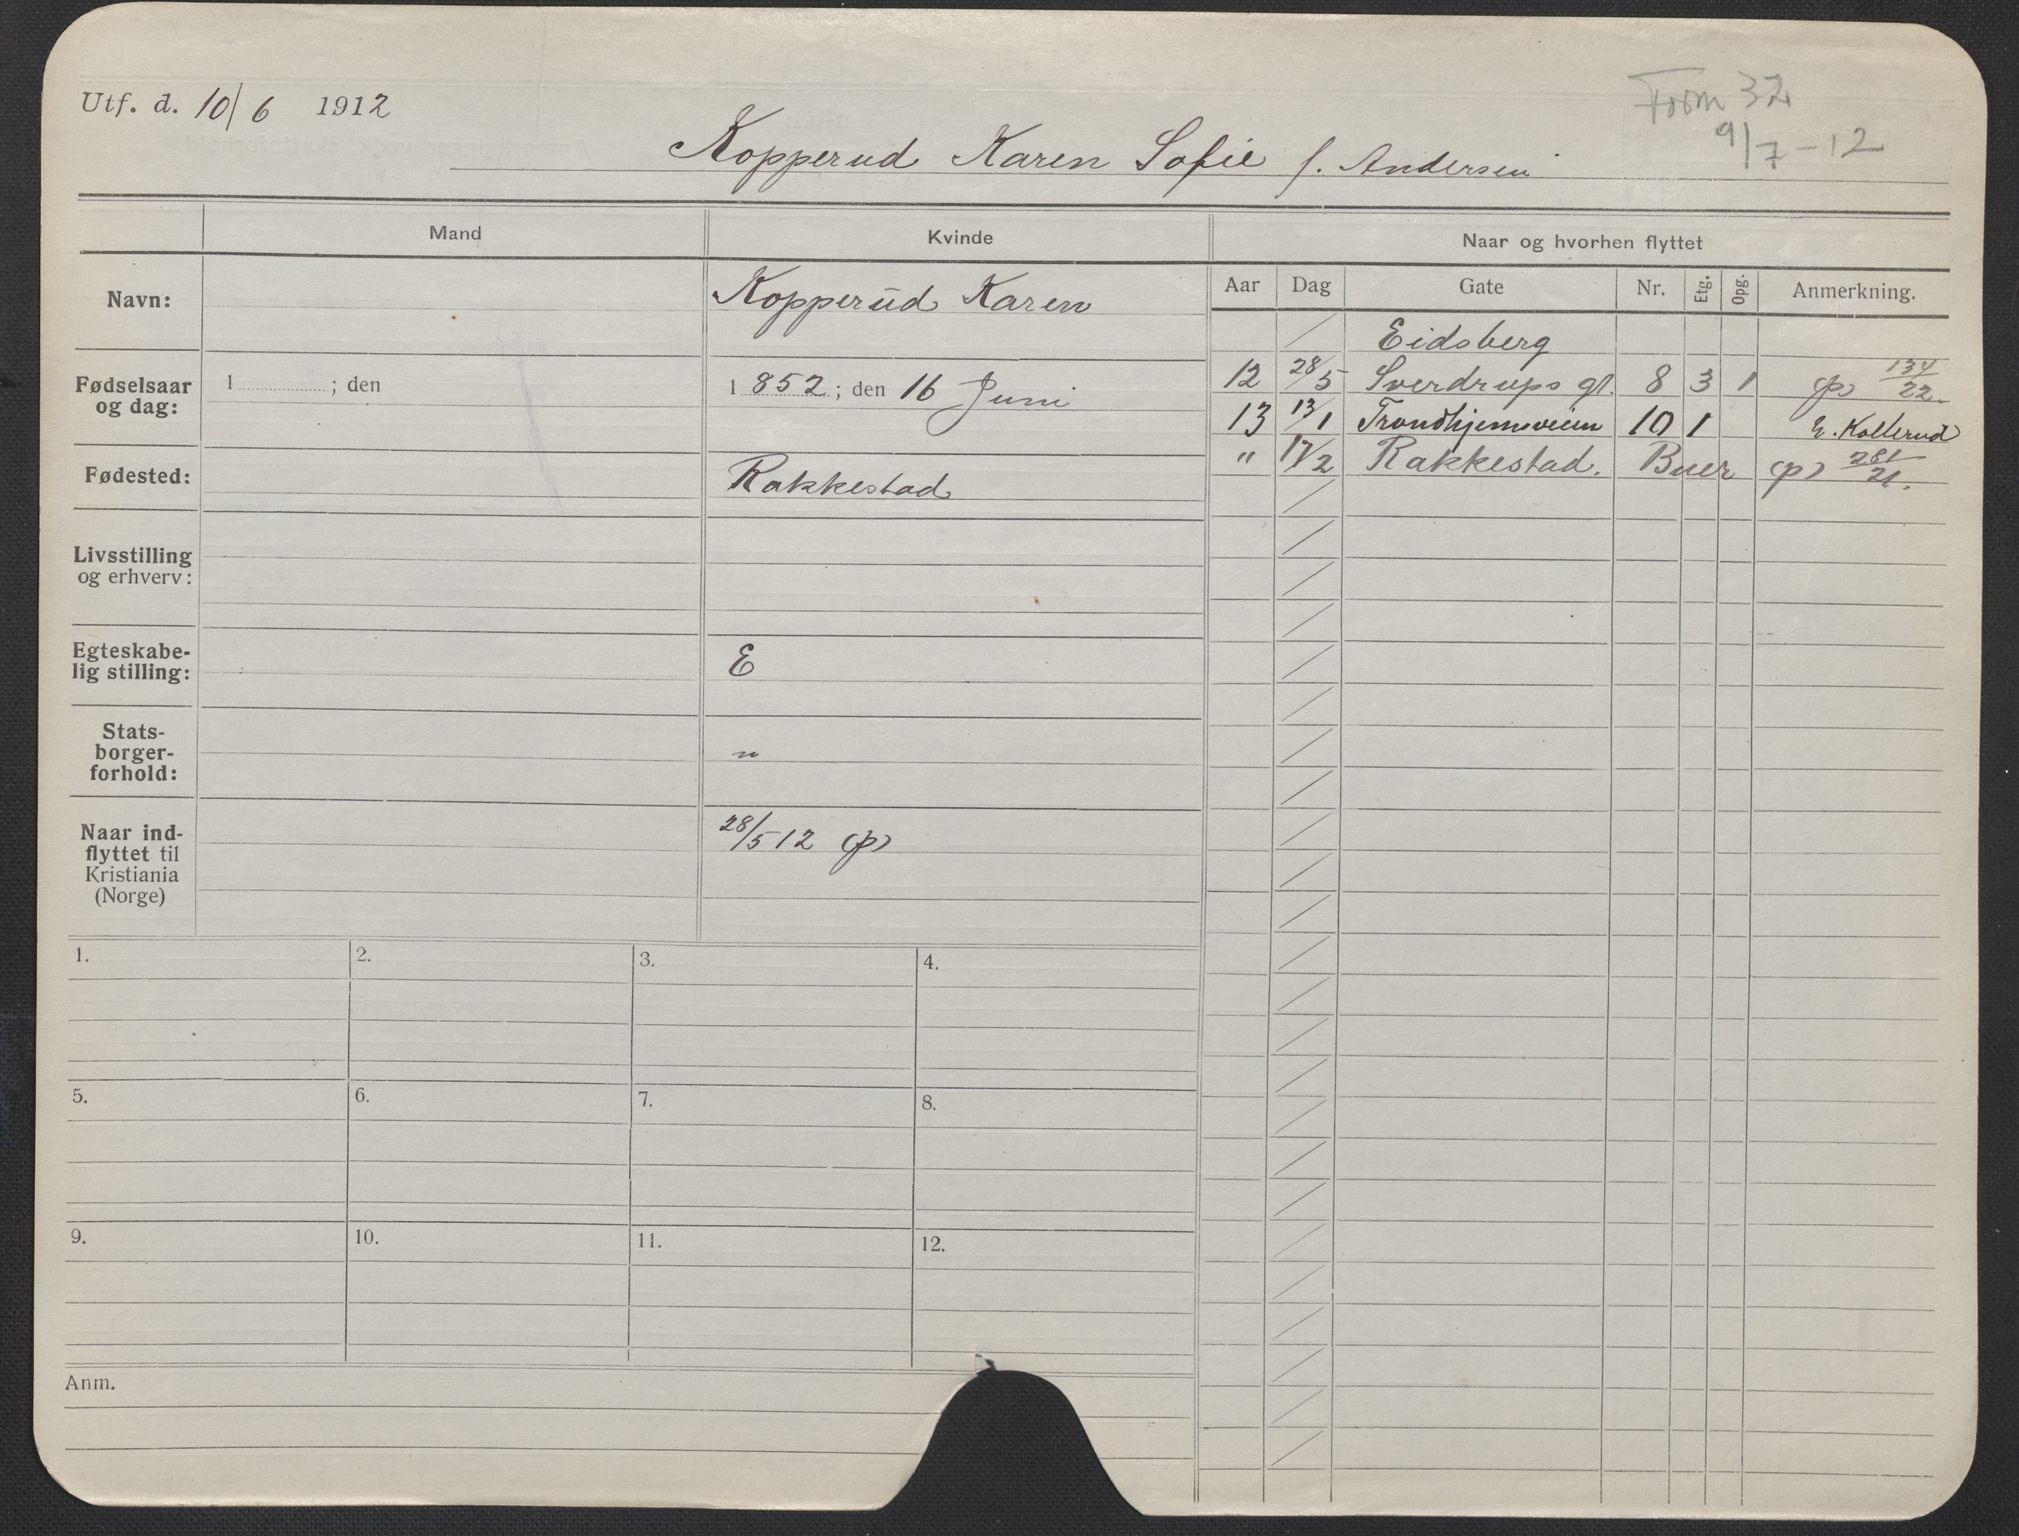 Utf. d. 10/6 1912
Form 32
9/7-12
Kopperud Karen Sofie f. Andersen
Mand
Kvinde
Naar og hvorhen flyttet
Navn:
Kopperud Karen
Aar Dag Gate Nr. Etg. Opg. Anmerkning.
Eidsberg
12 28/5 Sverdrups gt. 8 3 1 (p) 134/22.
13 13/1 Trondhjemsveien 10 1 E. Kollerud
" 17/2 Rakkestad. Buer (p) 281/21.
Fødselsaar
og dag:
1 ; den
1 852; den 16 Juni
Fødested:
Rakkestad
Livsstilling
og erhverv:
Egteskabe-
lig stilling:
E
Stats-
borger-
forhold:
n
Naar ind-
flyttet til
Kristiania
(Norge)
28/5 12 (p)
1. 2. 3. 4.
5. 6. 7. 8.
9. 10. 11. 12.
Anm.